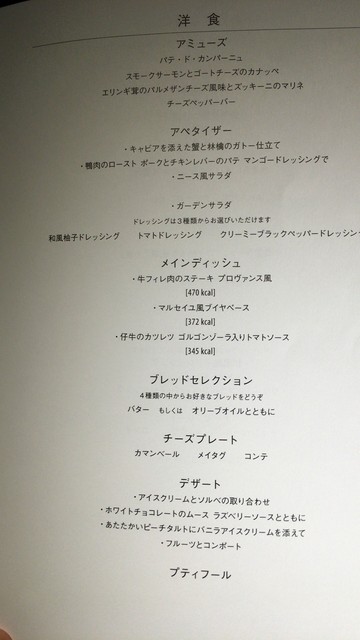 洋 食
アミューズ
パテ・ド・カンパーニュ
スモークサーモンとゴートチーズのカナッペ
エリンギ茸のパルメザンチーズ風味とズッキーニのマリネ
チーズペッパーバー
アペタイザー
・キャビアを添えた蟹と林檎のガトー仕立て
・鴨肉のロースト ポークとチキンレバーのパテ マンゴードレッシングで
・ニース風サラダ
・ガーデンサラダ
ドレッシングは3種類からお選びいただけます
和風柚子ドレッシング トマトドレッシング クリーミーブラックペッパードレッシン
メインディッシュ
・牛フィレ肉のステーキ プロヴァンス風
[470 kcal]
・マルセイユ風ブイヤベース
[372 kcal]
・仔牛のカツレツ ゴルゴンゾーラ入りトマトソース
[345 kcal]
ブレッドセレクション
4種類の中からお好きなブレッドをどうぞ
バター もしくは オリーブオイルとともに
チーズプレート
カマンベール メイタグ コンテ
デザート
・アイスクリームとソルベの取り合わせ
・ホワイトチョコレートのムース ラズベリーソースとともに
・あたたかいピーチタルトにバニラアイスクリームを添えて
・フルーツとコンポート
プティフール